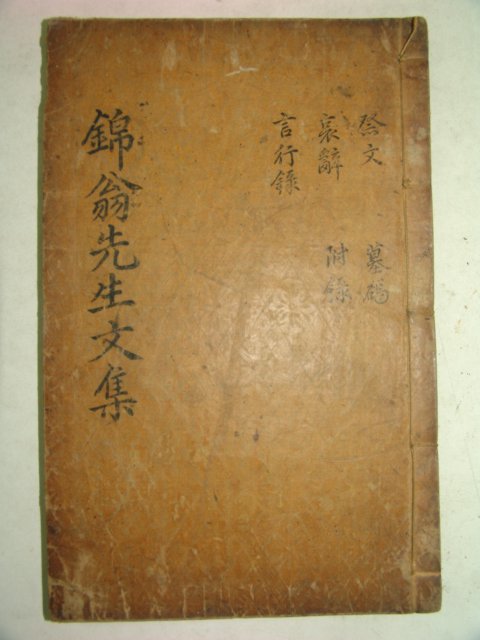 錦翁先生文集
祭文 墓碣
哀辭 附錄
言行錄